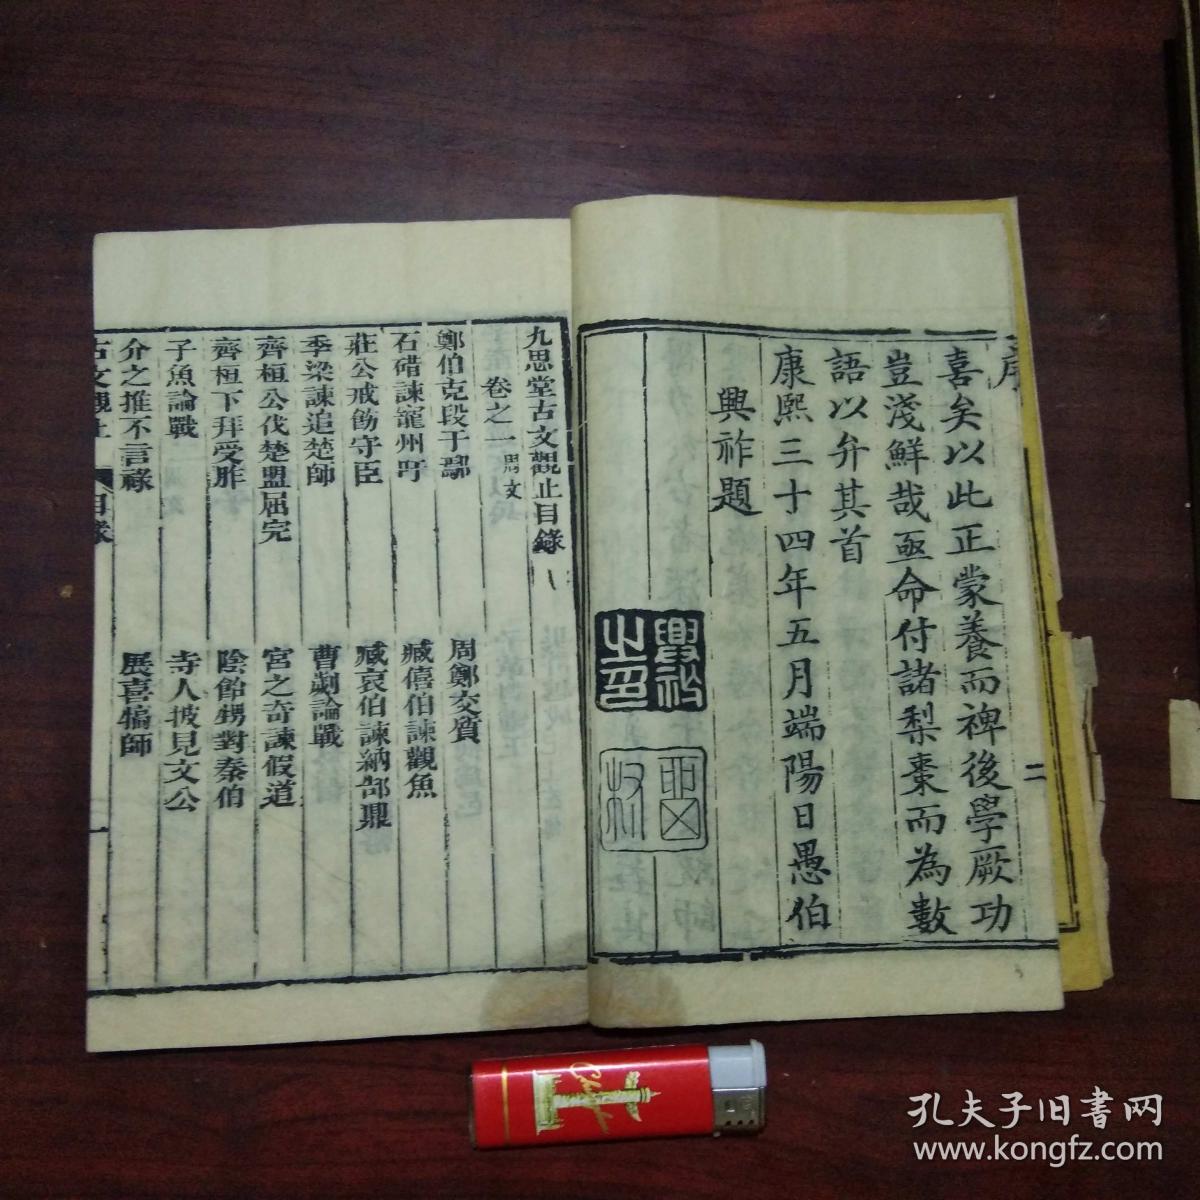 序
二
喜矣以此正蒙養而裨後學厥功
豈淺鮮哉亟命付諸梨棗而為數
語以弁其首
康熙三十四年五月端陽日愚伯
興祚題
興祚之印
九思堂古文觀止目錄
卷之一 周文
鄭伯克段于鄢
周鄭交質
石碏諫寵州吁
臧僖伯諫觀魚
莊公戒飭守臣
臧哀伯諫納郜鼎
季梁諫追楚師
曹劌論戰
齊桓公伐楚盟屈完
宮之奇諫假道
齊桓下拜受胙
陰飴甥對秦伯
子魚論戰
寺人披見文公
介之推不言祿
展喜犒師
古文觀止
目錄
一
孔夫子旧書网
www.kongfz.com